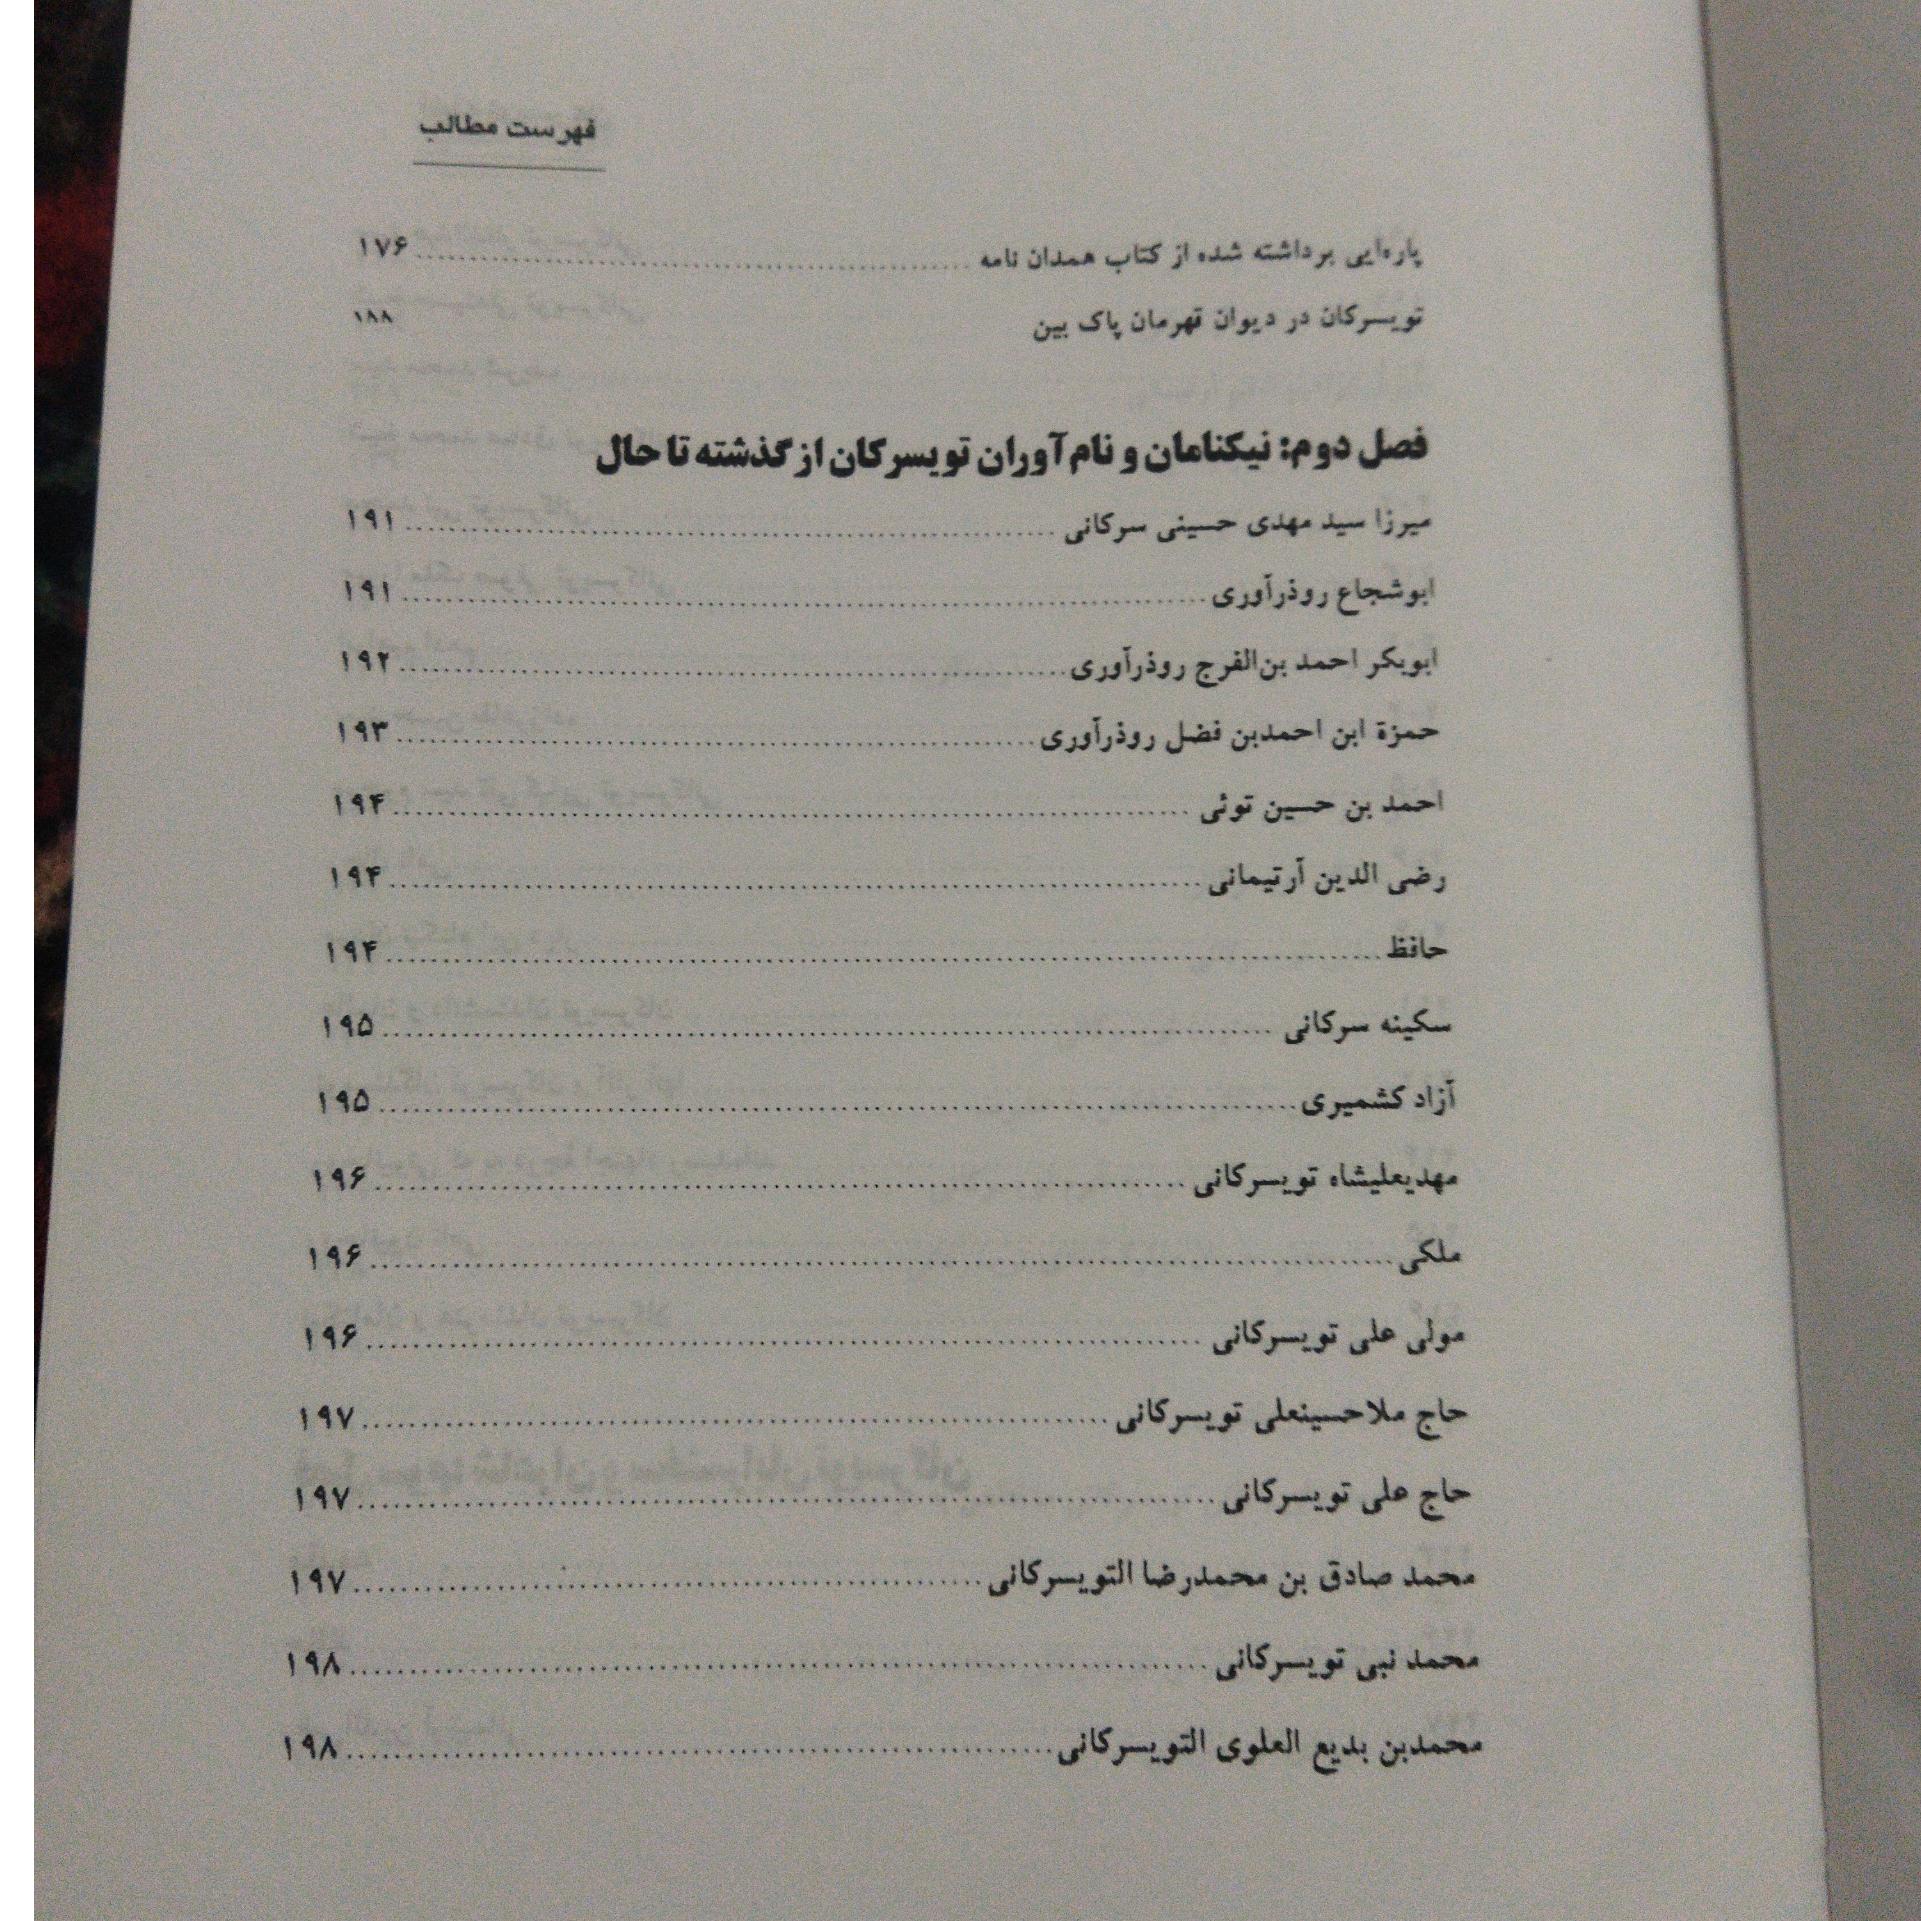 فهرست مطالب
پاره‌ایی برداشته شده از کتاب همدان نامه ........ ۱۷۶
تویسرکان در دیوان قهرمان پاک بین ۱۸۸
فصل دوم: نیکنامان و نام‌آوران تویسرکان از گذشته تا حال
میرزا سید مهدی حسینی سرکانی ........ ۱۹۱
ابوشجاع روذرآوری ........ ۱۹۱
ابوبکر احمد بن‌الفرج روذرآوری ........ ۱۹۲
حمزة ابن احمدبن فضل روذرآوری ........ ۱۹۳
احمد بن حسین توئی ........ ۱۹۴
رضی الدین آرتیمانی ........ ۱۹۴
حافظ ........ ۱۹۴
سکینه سرکانی ........ ۱۹۵
آزاد کشمیری ........ ۱۹۵
مهدیعلیشاه تویسرکانی ........ ۱۹۶
ملکی ........ ۱۹۶
مولی علی تویسرکانی ........ ۱۹۶
حاج ملاحسینعلی تویسرکانی ........ ۱۹۷
حاج علی تویسرکانی ........ ۱۹۷
محمد صادق بن محمدرضا التویسرکانی ........ ۱۹۷
محمد نبی تویسرکانی ........ ۱۹۸
محمدبن بدیع العلوی التویسرکانی ........ ۱۹۸